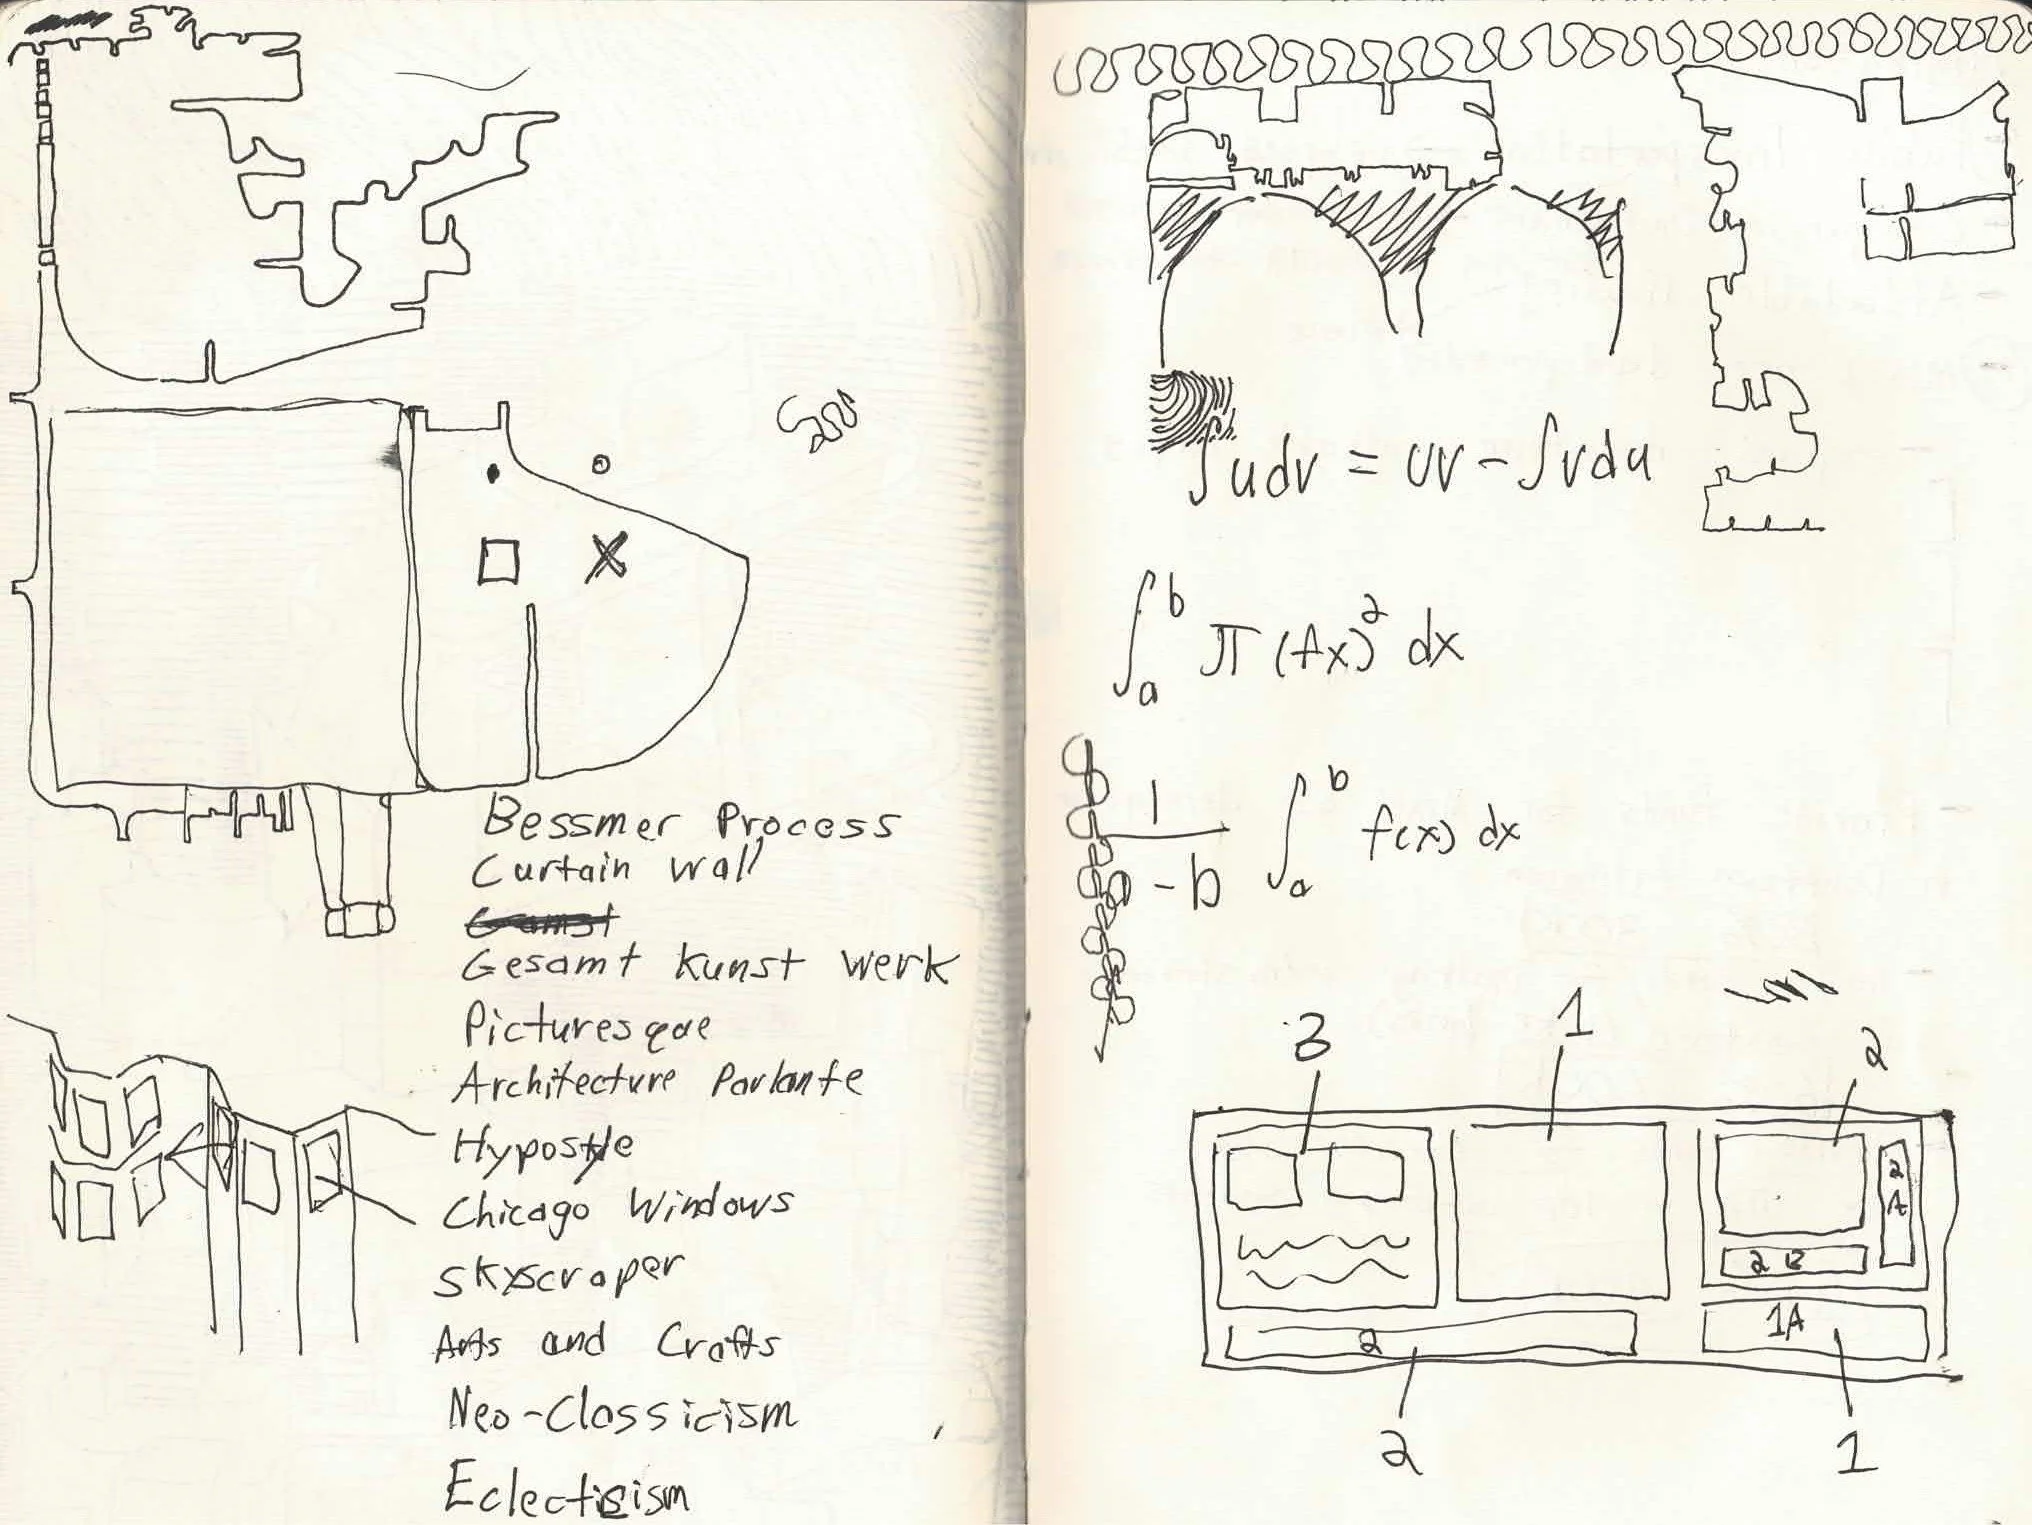 Bessmer Process
Curtain wall
Gesamt kunst werk
Picturesque
Architecture Parlante
Hypostyle
Chicago Windows
Skyscraper
Arts and Crafts
Neo-Classicism
Eclecticism
∫udv = uv - ∫vdu
∫ₐᵇ π (fx)² dx
1
- b ∫ₐᵇ f(x) dx
3 1 2
2A
2B
1A
2
2 1